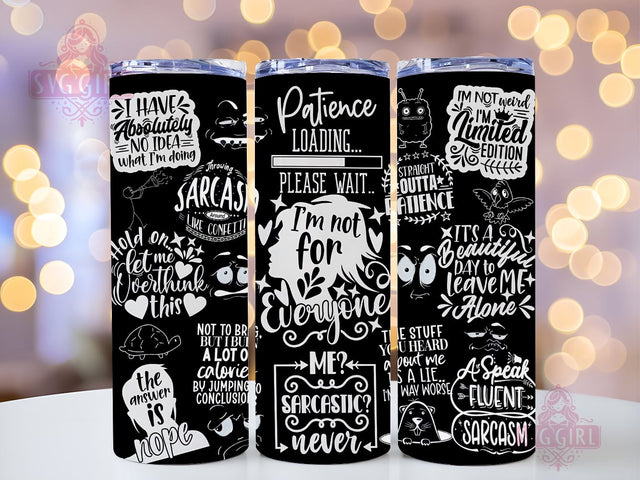 SVG GIRL
I HAVE
Absolutely
NO IDEA
what I'm doing
Throwing
SARCASM
LIKE CONFETTI
Hold on
let me
Overthink
this
NOT TO BRAG
BUT I BURN
A LOT OF
calories
BY JUMPING TO
CONCLUSIONS
the
answer
IS
nope
Patience
LOADING...
PLEASE WAIT..
I'm not
for
Everyone
ME?
SARCASTIC?
never
I'M NOT weird
I'M
Limited
EDITION
STRAIGHT
OUTTA
PATIENCE
IT'S A
Beautiful
DAY to
leave ME
Alone
THE STUFF
YOU HEARD
about me
IS A LIE
WAY WORSE
I Speak
FLUENT
SARCASM
SVG GIRL